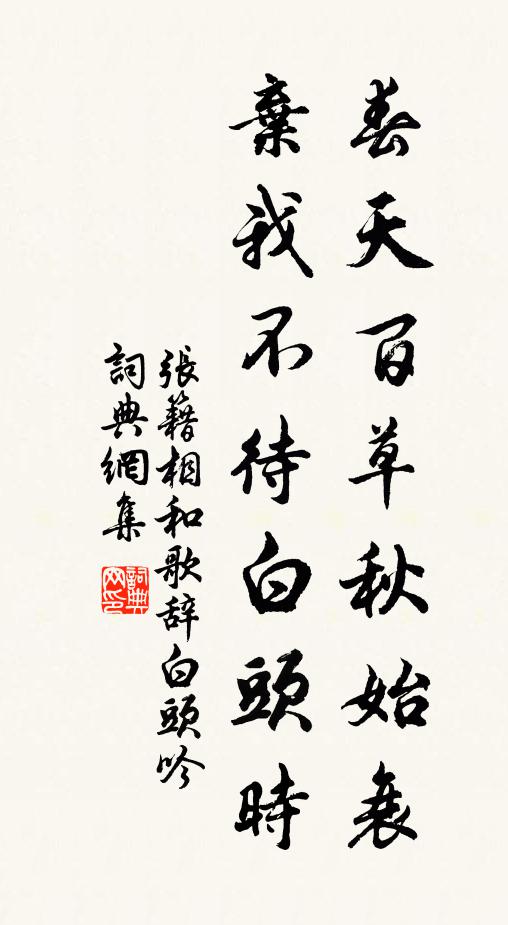 春天百草秋始衰
棄我不待白頭時
張籍相和歌辞白頭吟
詞典網集
詞典网印